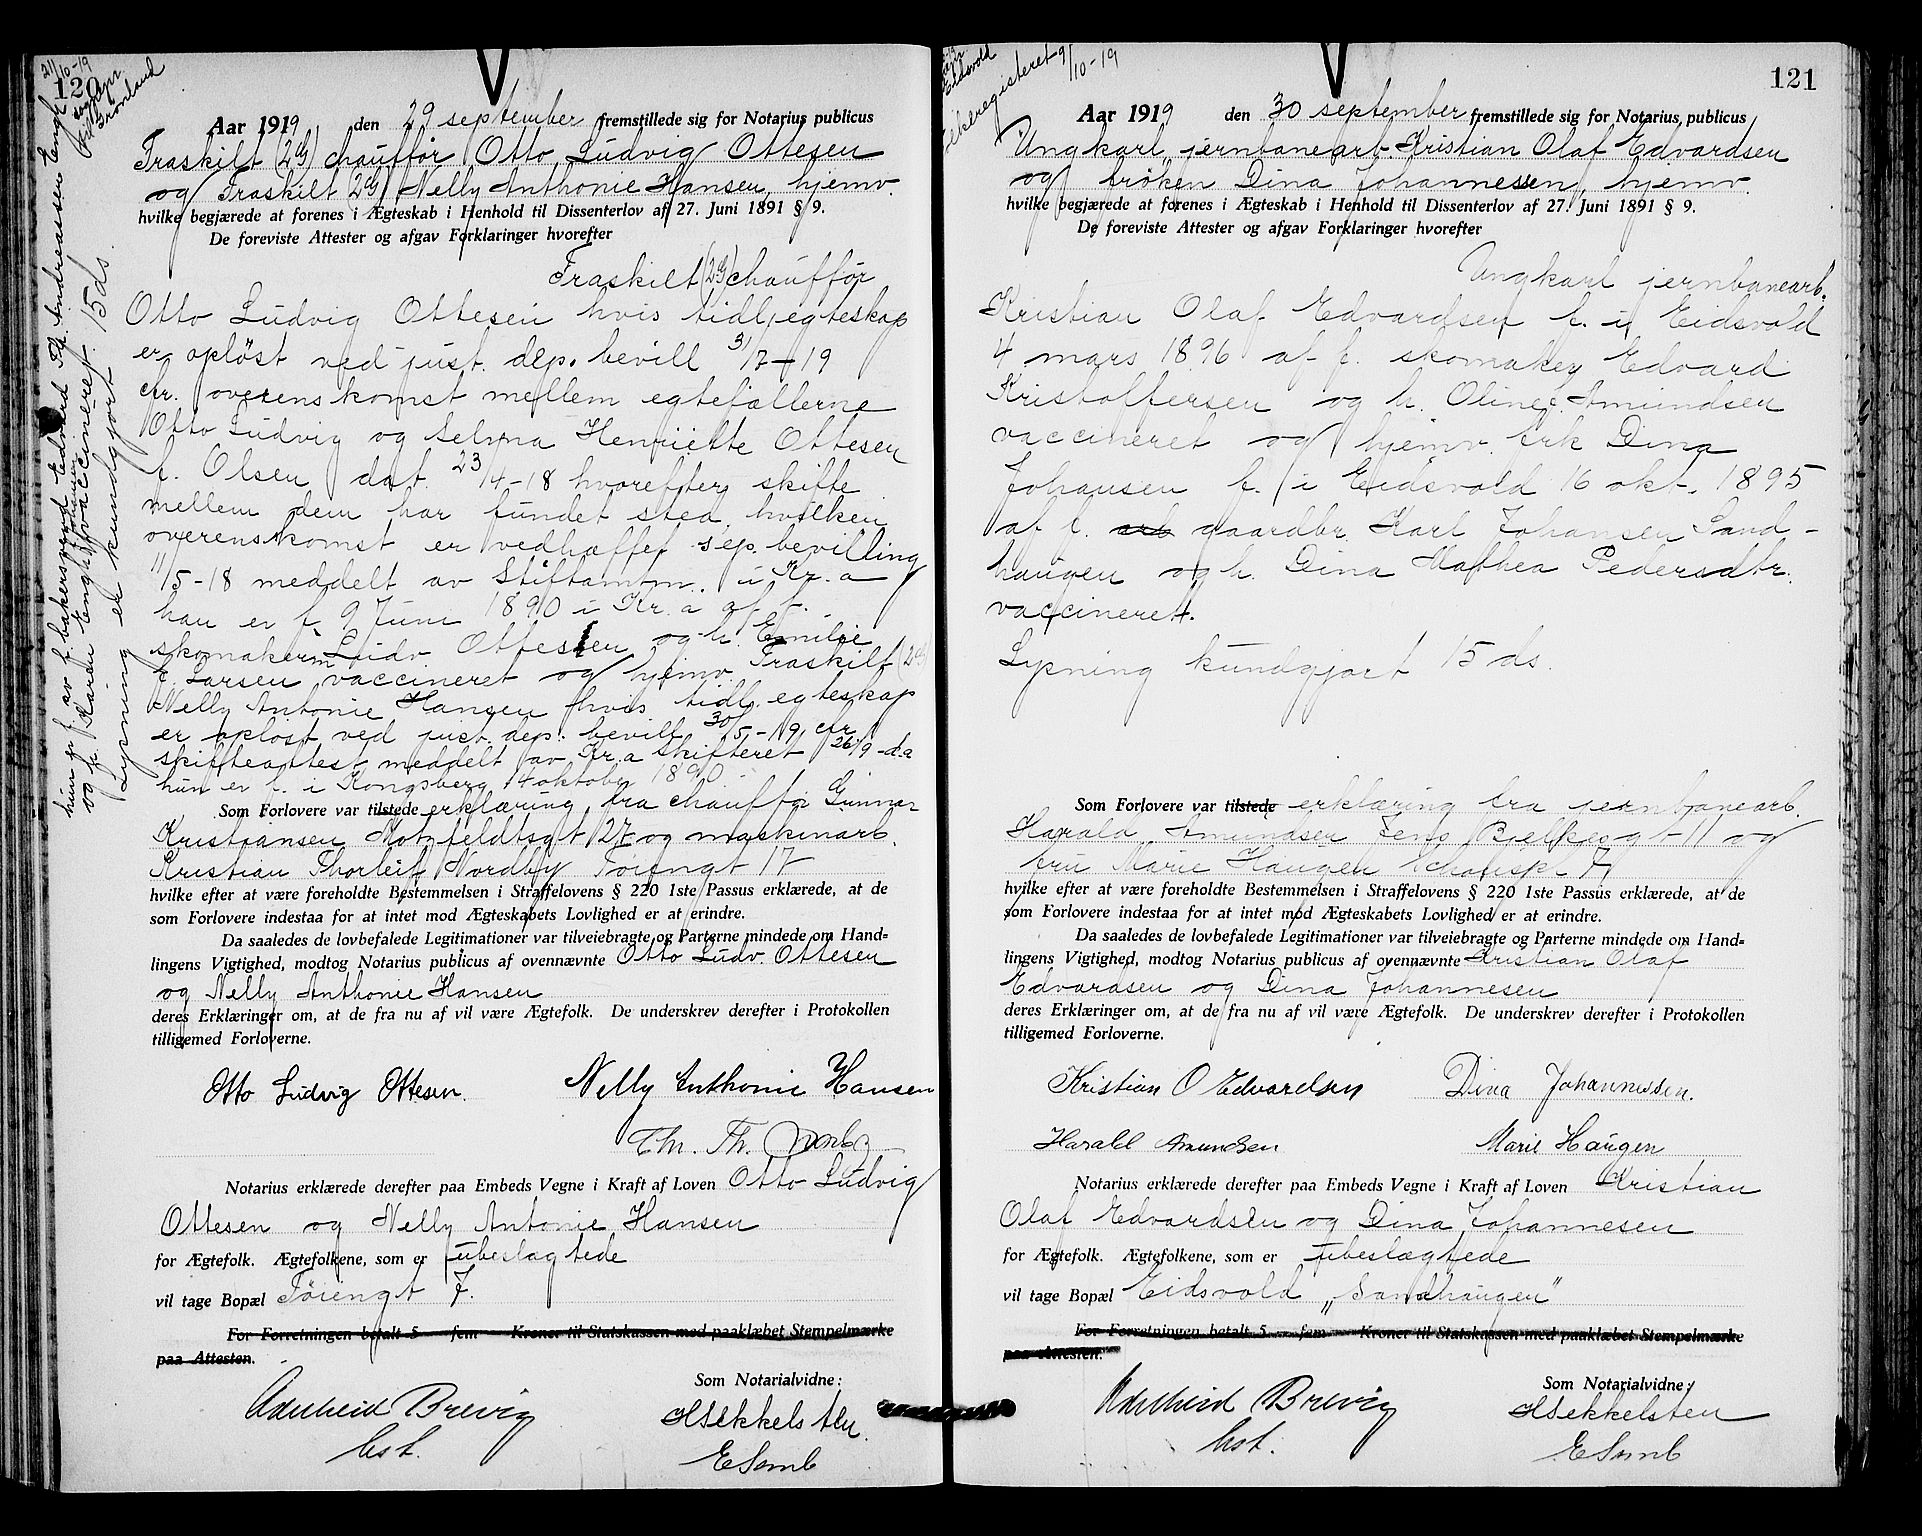 120
21/10-19
Grønland
Aar 1919 den 29 september fremstillede sig for Notarius publicus
Fraskilt (2G) chauffør Otto Ludvig Ottesen
og Fraskilt (2G) Nelly Anthonie Hansen, hjemv.
hvilke begjærede at forenes i Ægteskab i Henhold til Dissenterlov af 27. Juni 1891 § 9.
De foreviste Attester og afgav Forklaringer hvorefter
Fraskilt (2G) chauffør
Otto Ludvig Ottesen hvis tidl. egteskap
er opløst ved just. dep. bevill 31/7-19
cfr. overenskomst mellem egtefællerne
Otto Ludvig og Selma Henriette Ottesen
f. Olsen dat. 23/4-18 hvorefter skifte
mellem dem har fundet sted, hvilken
overenskomst er vedhæftet sep. bevilling
11/5-18 meddelt av Stiftamtm. i Kr.a
han er f. 9 Juni 1890 i Kr.a af f.
skomakerm Ludv. Ottesen og h. Emilie
f. Larsen, vaccineret og hjemv. Fraskilt (2G)
Nelly Antonie Hansen hvis tidl. egteskap
er opløst ved just. dep. bevill 30/5-19, cfr
skifteattest meddelt av Kr.a Skifteret 26/9-d.a
hun er f. i Kongsberg 14 oktober 1890
hun er f. av f. bakersvend Edvard Th. Andreassen Engh
og h. Karen Engh f. vaccineret.
Lysning er kundgjort 15 ds
Som Forlovere var tilstede erklæring fra chauffør Gunnar
Kristiansen Motzfeldtsgt 27 og maskinarb.
Kristian Thorleif Nordby Tøiengt 17
hvilke efter at være foreholdte Bestemmelsen i Straffelovens § 220 1ste Passus erklærede, at de
som Forlovere indestaa for at intet mod Ægteskabets Lovlighed er at erindre.
Da saaledes de lovbefalede Legitimationer var tilveiebragte og Parterne mindede om Hand-
lingens Vigtighed, modtog Notarius publicus af ovennævnte Otto Ludv. Ottesen
og Nelly Anthonie Hansen
deres Erklæringer om, at de fra nu af vil være Ægtefolk. De underskrev derefter i Protokollen
tilligemed Forloverne.
Otto Ludvig Ottesen. Nelly Anthonie Hansen
Notarius erklærede derefter paa Embeds Vegne i Kraft af Loven Otto Ludvig
Ottesen og Nelly Antonie Hansen
for Ægtefolk. Ægtefolkene, som er ubeslagtede
vil tage Bopæl Tøiengt 7.
For Forretningen betalt 5 — fem — Kroner til Statskassen med paaklæbet Stempelmærke
paa Attesten.
Som Notarialvidne:
Adelheid Brevig
kst.
HSekkelsten.
ESemb
121
9/10-19
Aar 1919 den 30 september fremstillede sig for Notarius publicus
Ungkarl jernbanearb. Kristian Olaf Edvardsen
og frøken Dina Johannesen, hjemv.
hvilke begjærede at forenes i Ægteskab i Henhold til Dissenterlov af 27. Juni 1891 § 9.
De foreviste Attester og afgav Forklaringer hvorefter
Ungkarl jernbanearb.
Kristian Olaf Edvardsen f. i Eidsvold
4 mars 1896 af f. skomaker Edvard
Kristoffersen og h. Oline f. Amundsen
vaccineret og hjemv. frk Dina
Johansen f. i Eidsvold 16 okt. 1895
af f. arb gaardbr. Karl Johansen Sand-
haugen og h. Dina Mathea Pedersdtr.
vaccineret.
Lysning kundgjort 15 ds.
Som Forlovere var tilstede erklæring fra jernbanearb.
Harald Amundsen Jens Bjelkesgt 11 og
fru Marie Haugen Schouspl. 7
hvilke efter at være foreholdte Bestemmelsen i Straffelovens § 220 1ste Passus erklærede, at de
som Forlovere indestaa for at intet mod Ægteskabets Lovlighed er at erindre.
Da saaledes de lovbefalede Legitimationer var tilveiebragte og Parterne mindede om Hand-
lingens Vigtighed, modtog Notarius publicus af ovennævnte Kristian Olaf
Edvardsen og Dina Johannesen
deres Erklæringer om, at de fra nu af vil være Ægtefolk. De underskrev derefter i Protokollen
tilligemed Forloverne.
Kristian O Edvardsen Dina Johannessen.
Harald Amundsen Marie Haugen
Notarius erklærede derefter paa Embeds Vegne i Kraft af Loven Kristian
Olaf Edvardsen og Dina Johannesen
for Ægtefolk. Ægtefolkene, som er ubeslægtede
vil tage Bopæl Eidsvold „Sandhaugen"
For Forretningen betalt 5 — fem — Kroner til Statskassen med paaklæbet Stempelmærke
paa Attesten.
Som Notarialvidne:
Adelheid Brevig
kst.
HSekkelsten
ESemb